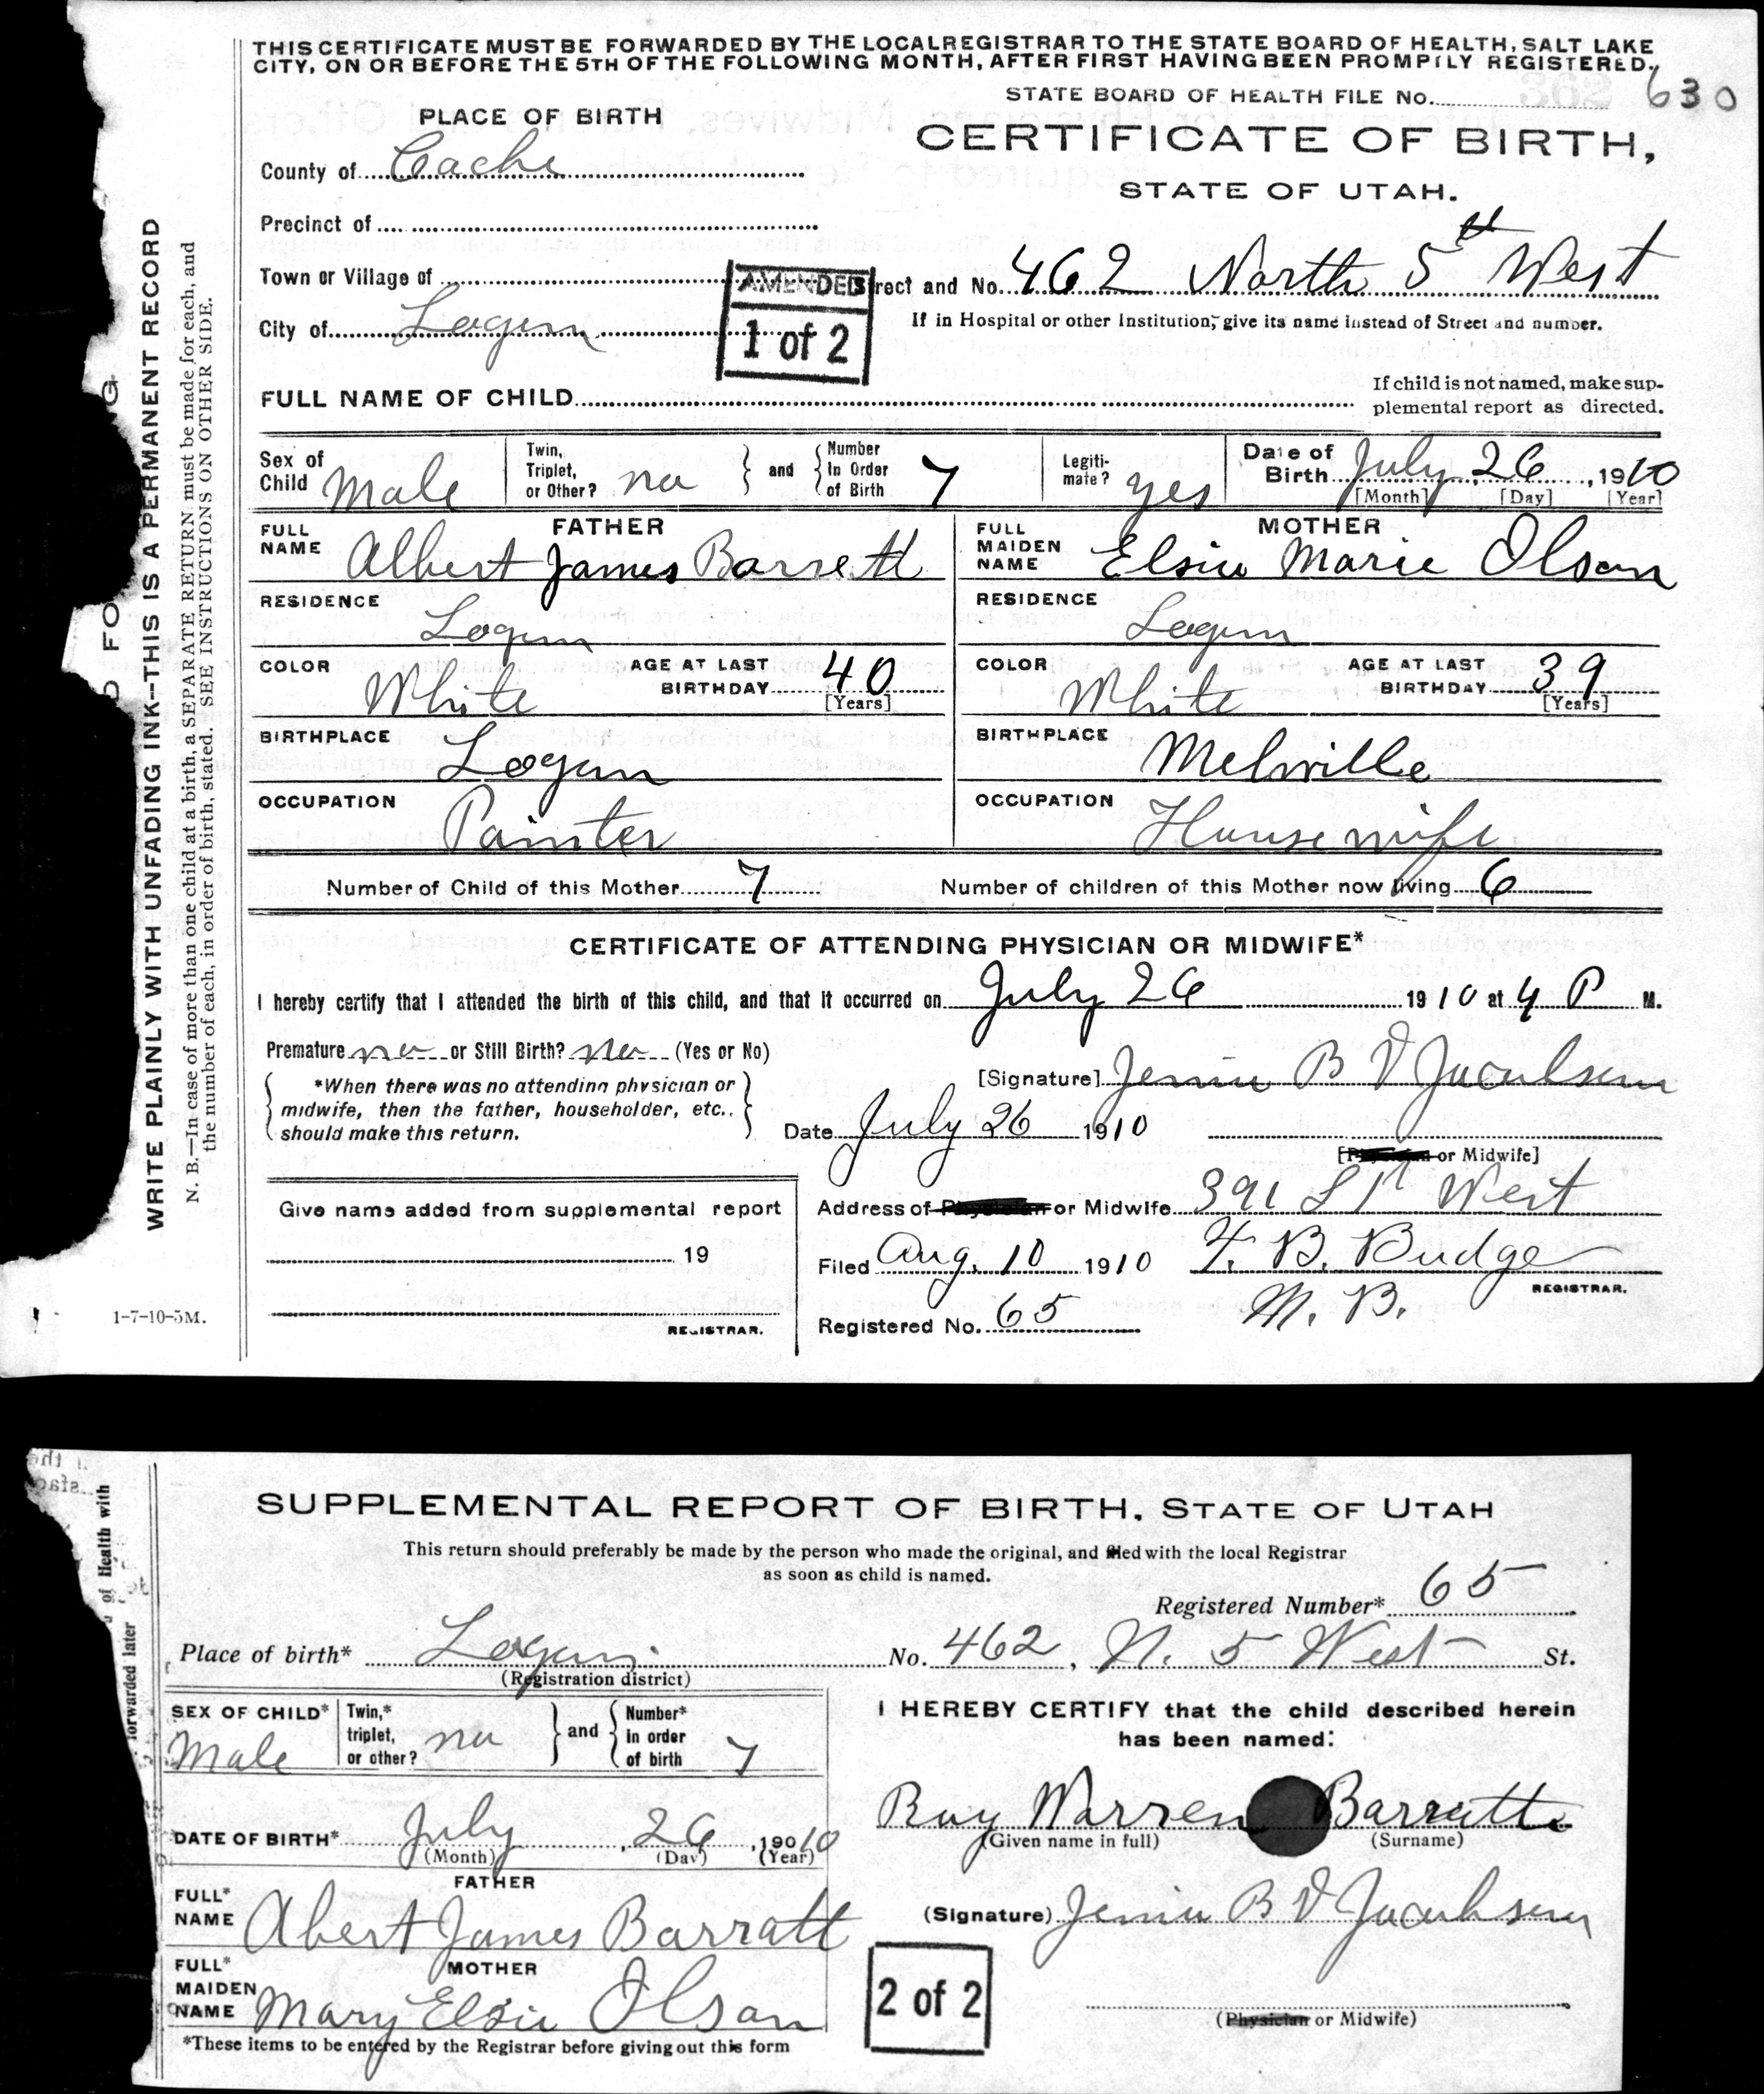 THIS CERTIFICATE MUST BE FORWARDED BY THE LOCAL REGISTRAR TO THE STATE BOARD OF HEALTH, SALT LAKE
CITY, ON OR BEFORE THE 5TH OF THE FOLLOWING MONTH, AFTER FIRST HAVING BEEN PROMPTLY REGISTERED.
STATE BOARD OF HEALTH FILE No. 630
PLACE OF BIRTH
CERTIFICATE OF BIRTH,
STATE OF UTAH.
County of Cache
Precinct of
Town or Village of
AMENDED
1 of 2
Street and No. 462 North 5th West
If in Hospital or other Institution, give its name instead of Street and number.
City of Logan
FULL NAME OF CHILD
If child is not named, make sup-
plemental report as directed.
Sex of Child Male
Twin, Triplet, or Other? no
and Number In Order of Birth 7
Legiti-mate? yes
Date of Birth July 26, 1910
[Month] [Day] [Year]
FATHER
FULL NAME Albert James Barrett
RESIDENCE Logan
COLOR White AGE AT LAST BIRTHDAY 40 [Years]
BIRTHPLACE Logan
OCCUPATION Painter
MOTHER
FULL MAIDEN NAME Elsie Marie Olson
RESIDENCE Logan
COLOR White AGE AT LAST BIRTHDAY 39 [Years]
BIRTHPLACE Melville
OCCUPATION Housewife
Number of Child of this Mother 7 Number of children of this Mother now living 6
CERTIFICATE OF ATTENDING PHYSICIAN OR MIDWIFE*
I hereby certify that I attended the birth of this child, and that it occurred on July 26 1910 at 4 P M.
Premature no or Still Birth? no (Yes or No)
*When there was no attending physician or
midwife, then the father, householder, etc.,
should make this return.
[Signature] Jennie B V Jacobsen
Date July 26 1910
[Physician or Midwife]
Give name added from supplemental report
19
REGISTRAR.
Address of Physician or Midwife 391 West
Filed Aug. 10 1910 T. B. Budge
REGISTRAR.
M. B.
Registered No. 65
WRITE PLAINLY WITH UNFADING INK—THIS IS A PERMANENT RECORD
N. B.—In case of more than one child at a birth, a SEPARATE RETURN must be made for each, and
the number of each, in order of birth, stated. SEE INSTRUCTIONS ON OTHER SIDE.
1-7-10-5M.
SUPPLEMENTAL REPORT OF BIRTH, STATE OF UTAH
This return should preferably be made by the person who made the original, and filed with the local Registrar
as soon as child is named.
Registered Number* 65
Place of birth* Logan No. 462, N. 5 West St.
(Registration district)
SEX OF CHILD* Male
Twin,* triplet, or other? no
and Number* in order of birth 7
I HEREBY CERTIFY that the child described herein
has been named:
Ray Warren Barratt
(Given name in full) (Surname)
DATE OF BIRTH* July, 26, 19010
(Month) (Day) (Year)
FATHER
FULL* NAME Abert James Barratt
(Signature) Jennie B V Jacobsen
MOTHER
FULL* MAIDEN NAME Mary Elsie Olson
2 of 2
(Physician or Midwife)
*These items to be entered by the Registrar before giving out this form
of Health with
forwarded later